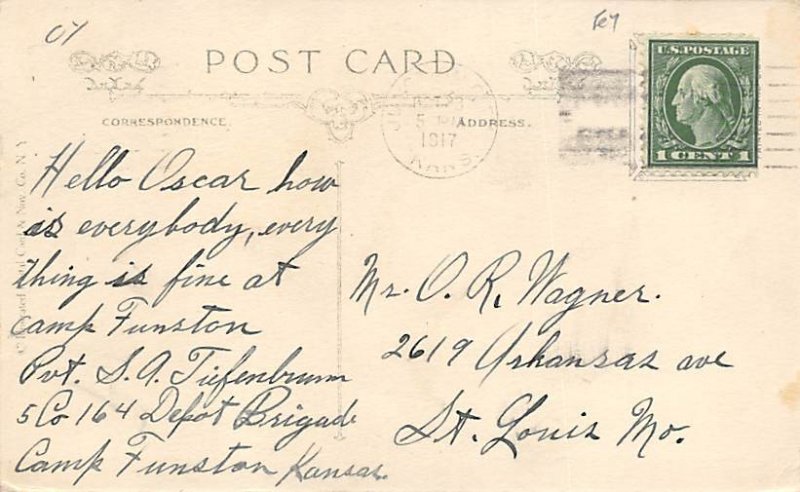 07
POST CARD
U.S. POSTAGE
1 CENT 1
CORRESPONDENCE.
ADDRESS.
1917
KANS.
Hello Oscar how
is everybody, every
thing is fine at
Camp Funston
Pvt. S. A. Tiefenbrunn
5 Co 164 Depot Brigade
Camp Funston Kansas.
Mr. O. R. Wagner.
2619 Arkansas ave
St. Louis Mo.